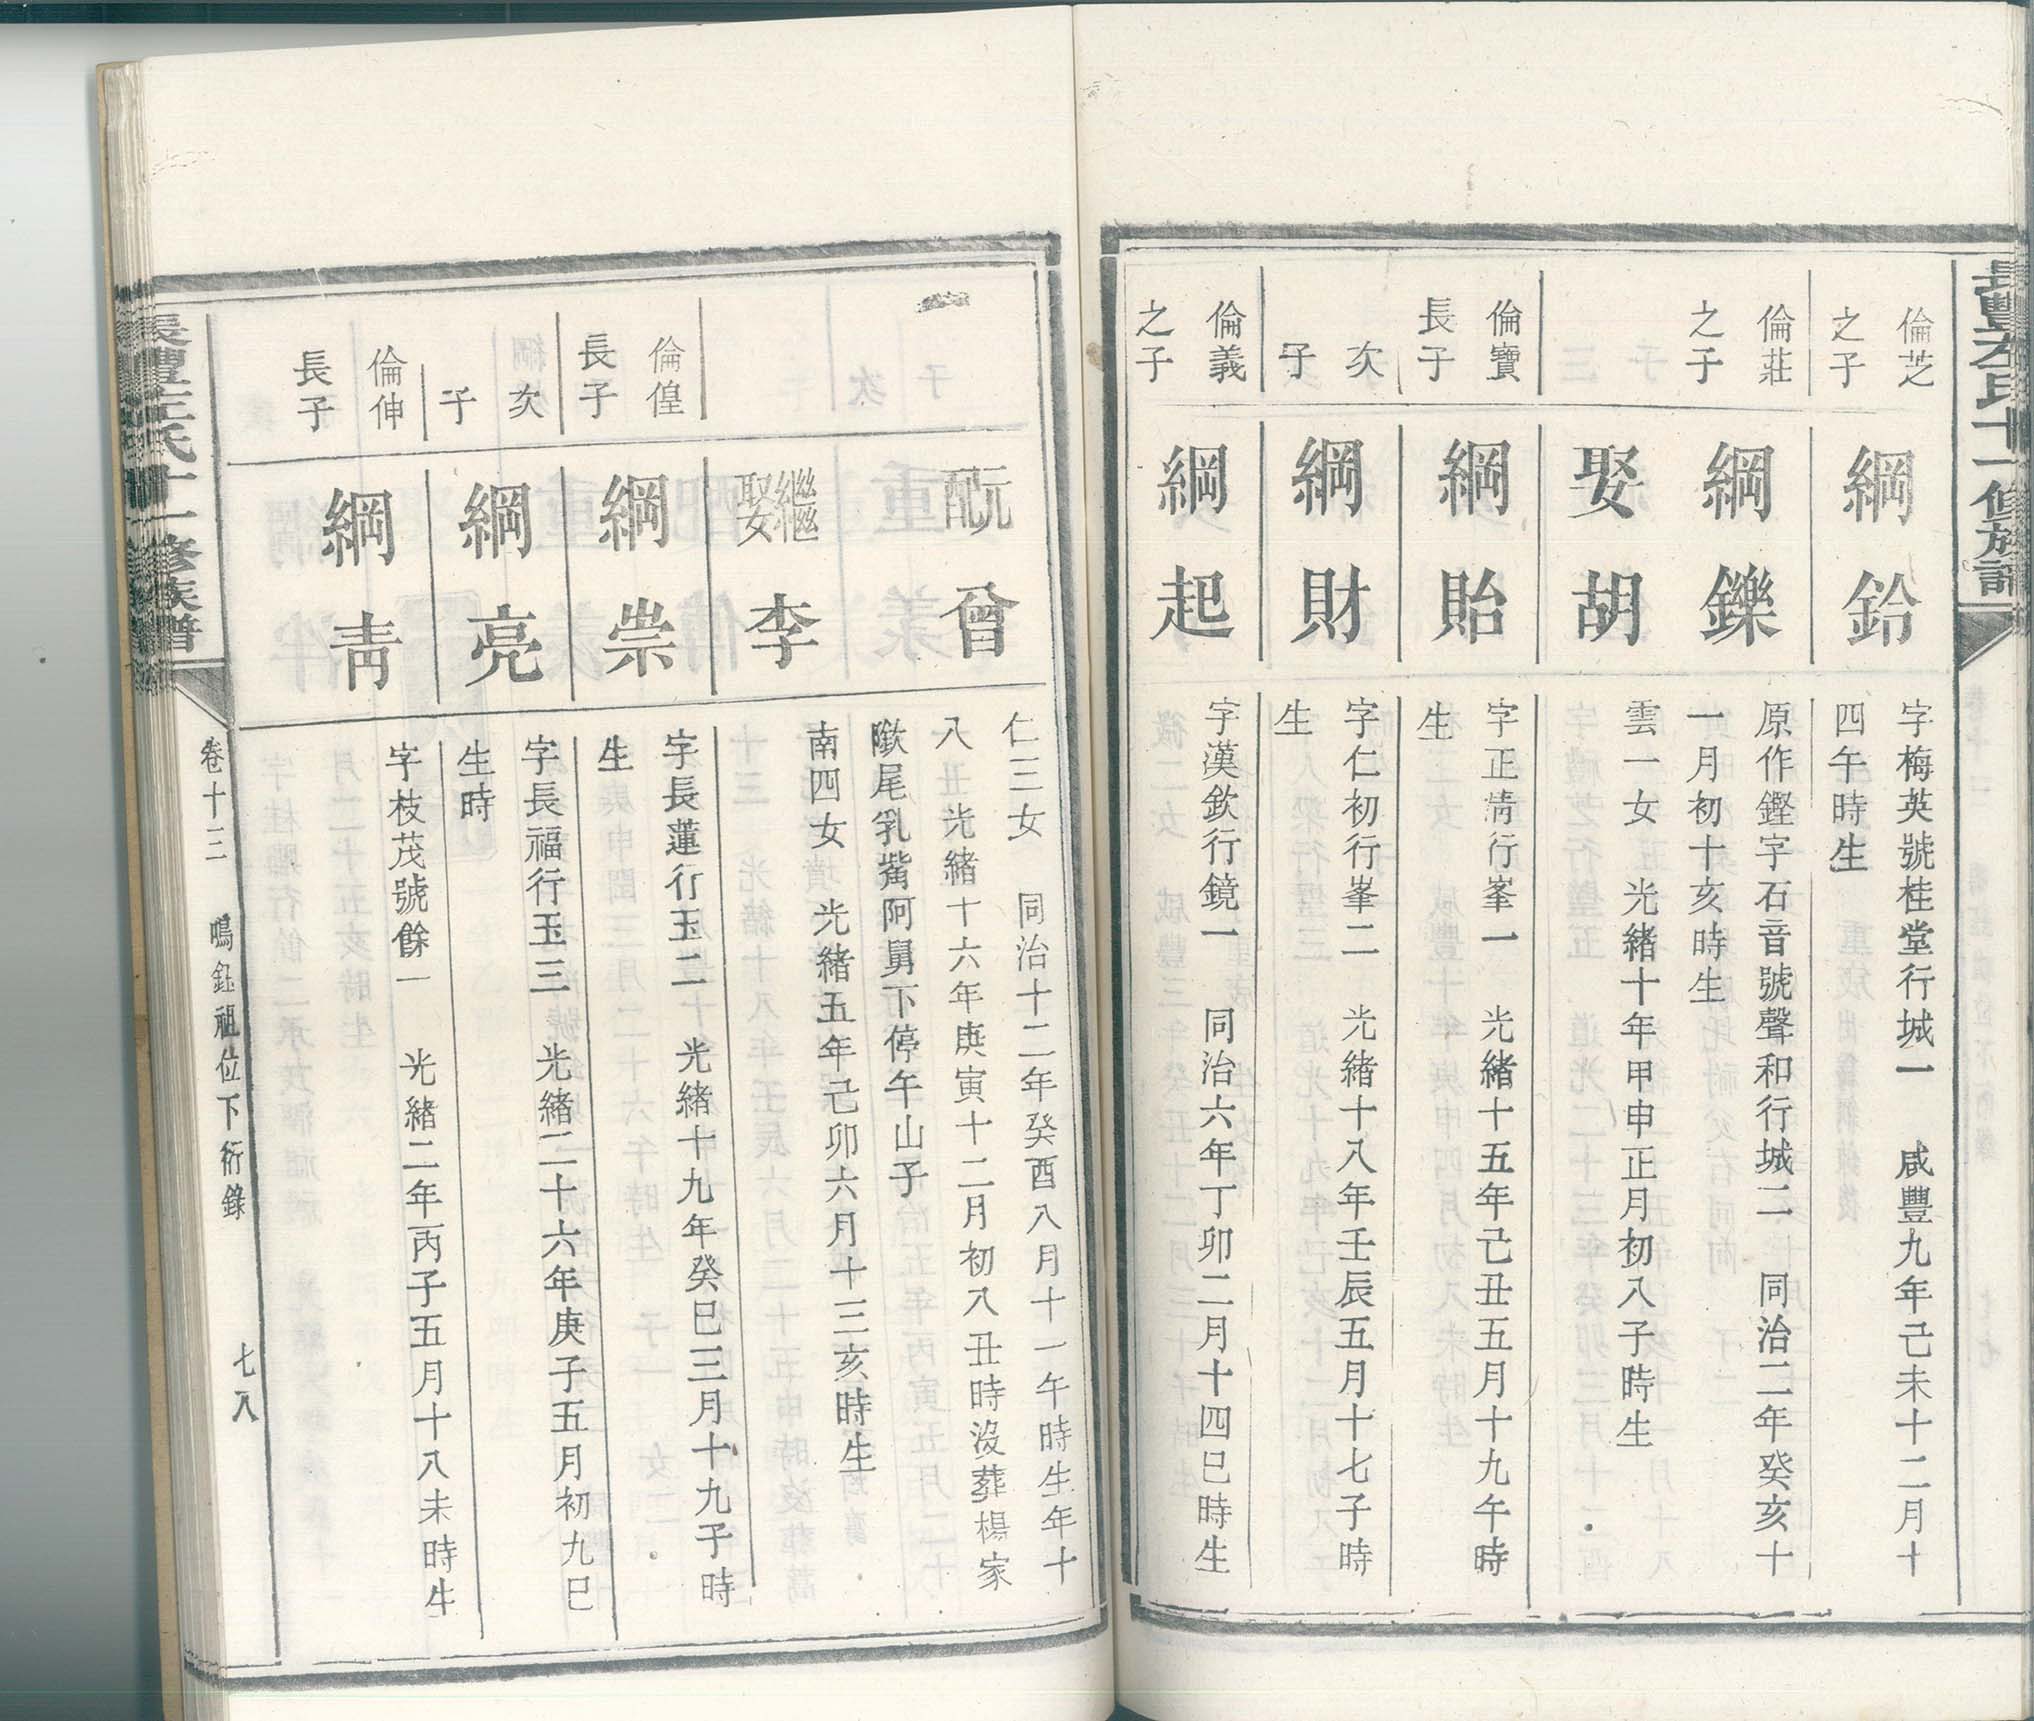 長豐左氏十一修族譜
倫芝
之子
綱鈴
字梅英號桂堂行城一 咸豐九年己未十二月十
四午時生
倫莊
之子
綱鑠
原作鏗字石音號聲和行城二 同治二年癸亥十
一月初十亥時生
娶胡
雲一女 光緒十年甲申正月初八子時生
倫寶
長子
綱貽
字正情行峯一 光緒十五年己丑五月十九午時
生
次
子
綱財
字仁初行峯二 光緒十八年壬辰五月十七子時
生
倫義
之子
綱起
字漢欽行鏡一 同治六年丁卯二月十四巳時生
元配
曾
仁三女 同治十二年癸酉八月十一午時生年十
八 光緒十六年庚寅十二月初八丑時沒葬楊家
尾乳觜阿舅下停午山子
繼娶
李
南四女 光緒五年己卯六月十三亥時生
倫偟
長子
綱崇
字長蓮行玉二 光緒十九年癸巳三月十九子時
生
次
子
綱亮
字長福行玉三 光緒二十六年庚子五月初九巳
時生
倫伸
長子
綱青
字枝茂號餘一 光緒二年丙子五月十八未時生
長豐左氏十一修族譜
卷十三 鳴鈺祖位下衍錄 七八